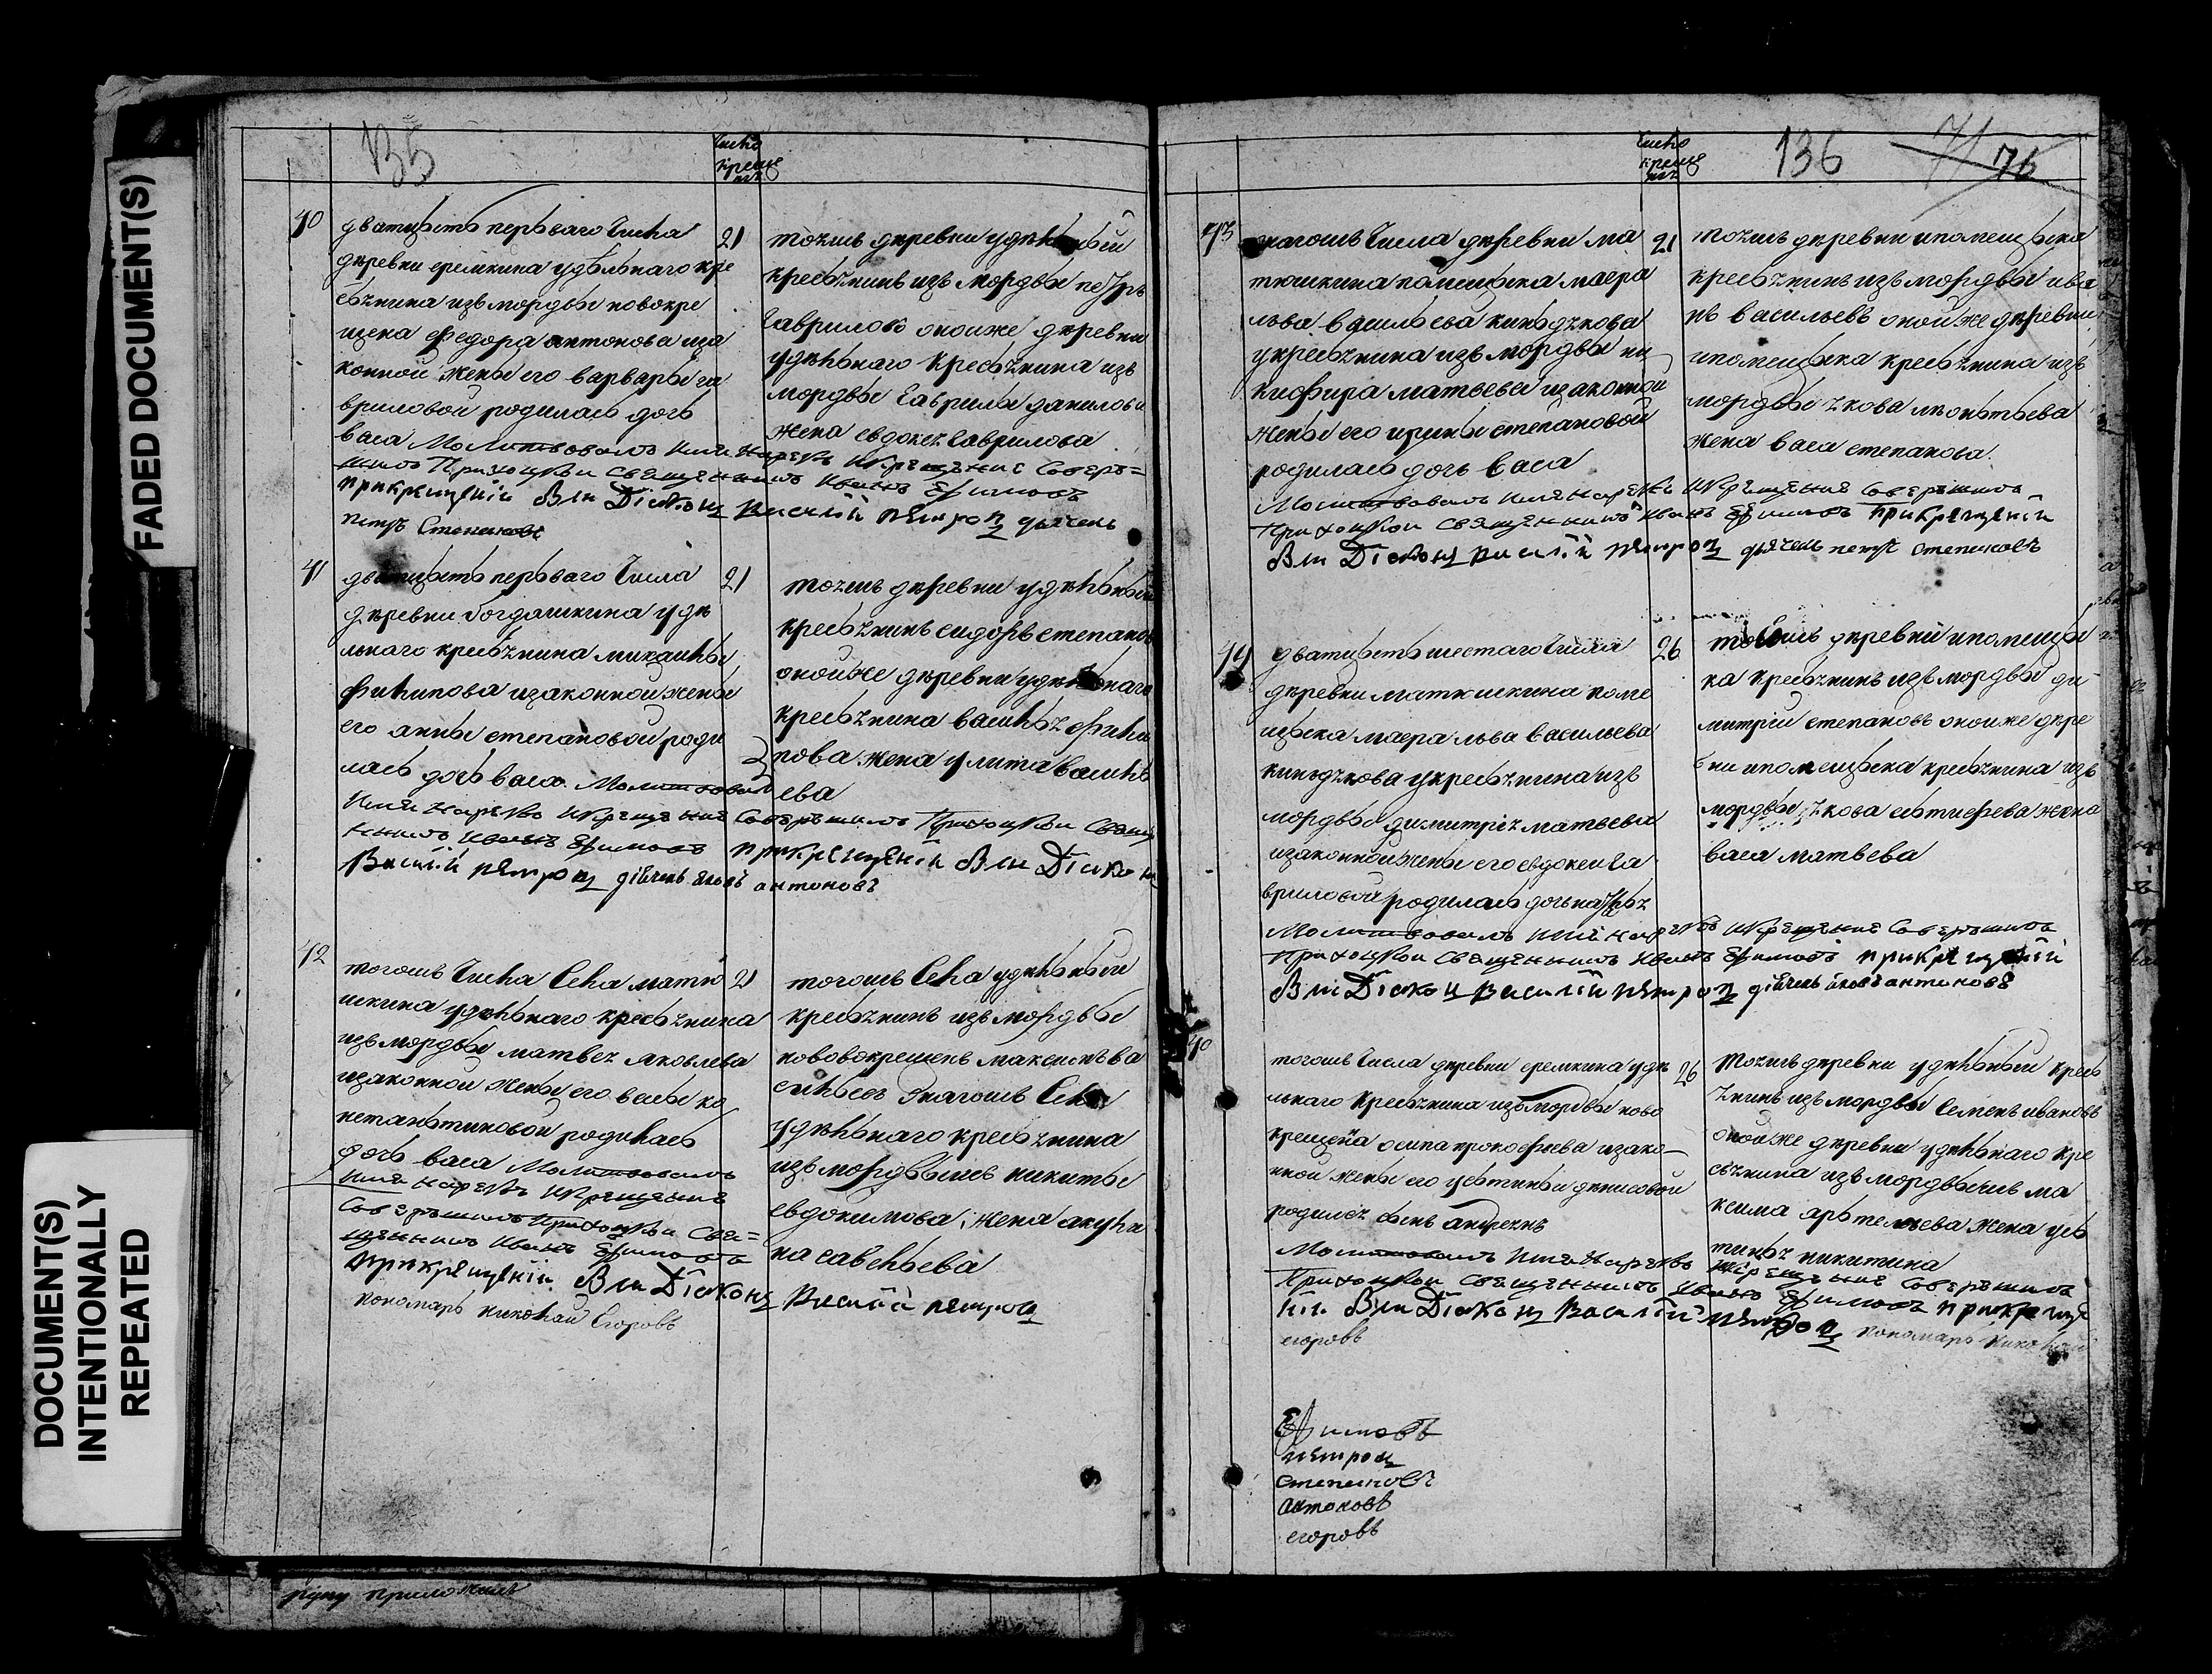 FADED DOCUMENT(S)
DOCUMENT(S)
INTENTIONALLY
REPEATED
135
Число
креще
нiя
40
дватцать перьваго Числа
21
деревни еремкина удельнаго кре
стьянина изъ мордвы новокре
щена федора антонова иза
конной жены его варвары га
вриловой родилась дочь
васа Молитвовалъ имя нарекъ и крещение Совер=
шилъ Приходкои священникъ Иванъ Ефимовъ
прикрещенiи был Дiаконъ Василiй петровъ дьячекъ
петръ Степановъ
тоежъ деревни удельный
крестьянинъ изъ мордвы петръ
Гавриловъ оной же деревни
удельнаго крестьянина изъ
мордвы Гаврилы данилова
жена евдокея Гаврилова
41
дватцать перьваго Числа
21
деревни богдашкина уде
льнаго крестьянина михаилы
филипова изаконной жены
его анны степановой роди
лась дочь васа Молитвовалъ
имя нарекъ и крещение Совершилъ Приходкои Свяще
нникъ Иванъ Ефимовъ прикрещенiи был Дiаконъ
Василiй петровъ дiячекъ яковъ антоновъ
тоежъ деревни удельный
крестьянинъ сидоръ степановъ
оной же деревни удельнаго
крестьянина василья фили
пова жена улита василь
ева
42
тогожъ Числа Села матю
21
шкина удельнаго крестьянина
изъ мордвы матвея яковлева
изаконной жены его васы ко
нстаньтиновой родилась
дочь васа Молитвовалъ
имя нарекъ и крещение
Совершилъ Приходкои Свя=
щенникъ Иванъ Ефимовъ
прикрещенiи был Дiаконъ Василiй петровъ
пономарь николай Егоровъ
тогожъ Села удельный
крестьянинъ изъ мордвы
нововокрещенъ максимъ ва
сильевъ онагожъ Села
удельнаго крестьянина
изъ мордвы никиты
евдокимова жена акули
на савельева
руку приложилъ
Число
креще
нiя
136
71
76
43
онагожъ Числа деревни ма
21
тюшкина памещика маера
льва васильева киндякова
у крестьянина изъ мордвы ни
кифира матвева изаконной
жены его ирины степановой
родилась дочь васа
Молитвовалъ имя нарекъ и крещение Совершилъ
Приходкои Священникъ Иванъ Ефимовъ прикрещенiи
был Дiаконъ василiй петровъ дьячекъ петръ степановъ
тоежъ деревни ипомещика
крестьянинъ изъ мордвы ива
нъ васильевъ оной же деревни
ипомещика крестьянина изъ
мордвы якова леонтьева
жена васа степанова
44
дватцать шестаго Числа
26
деревни матюшкина поме
щика маера льва васильева
киндякова у крестьянина изъ
мордвы димитрея матвева
изаконной жены его евдокеи га
вриловой родилась дочь наталья
Молитвовалъ имя нарекъ и крещение Совершилъ
Приходкои Священникъ Иванъ Ефимовъ прикрещенiи
был Дiаконъ Василiй петровъ дiячекъ яковъ антоновъ
тоежъ деревни ипомещи
ка крестьянинъ изъ мордвы ди
митрий степановъ оной же дере
вни ипомещика крестьянина изъ
мордвы якова жена
васа матвева
40
тогожъ Числа деревни еремкина уде
26
льнаго крестьянина изъ мордвы ново
крещена осипа прокофьева изако-
нной жены его устиньи денисовой
родился сынъ андреянъ
Молитвовалъ имя нарекъ и крещение Совершилъ
Приходкои Священникъ Иванъ Ефимовъ прикреще
нiи был Дiаконъ Василiй петровъ пономарь николай
егоровъ
тоежъ деревни удельный кресть
янинъ изъ мордвы Семенъ ивановъ
оной же деревни удельнаго кре
стьянина изъ мордвы ма
ксима артемьева жена ус
тинья никитина
Ефимовъ
петровъ
степановъ
антоновъ
егоровъ